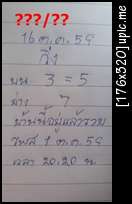 ???/??
16 ต.ค. 59
วิ่ง
บน 3 = 5
ล่าง 7
บ้านนี้อยู่แล้วรวย
1 ต.ค. 59
เวลา 20.20 น.
[176x320] upic.me